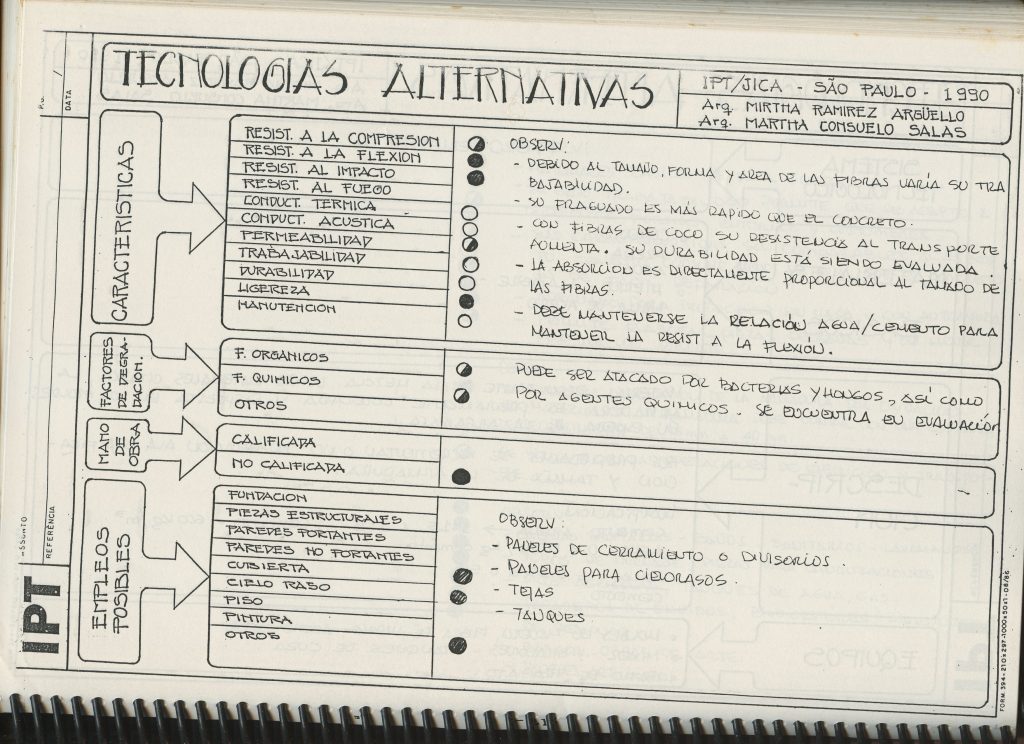 TECNOLOGIAS ALTERNATIVAS
IPT/JICA - SÃO PAULO - 1990
Arq. MIRTHA RAMIREZ ARGÜELLO
Arq. MARTHA CONSUELO SALAS
DATA
CARACTERISTICAS
RESIST. A LA COMPRESION
RESIST. A LA FLEXION
RESIST. AL IMPACTO
RESIST. AL FUEGO
CONDUCT. TERMICA
CONDUCT. ACUSTICA
PERMEABILIDAD
TRABAJABILIDAD
DURABILIDAD
LIGEREZA
MANUTENCION
OBSERV:
- DEBIDO AL TAMAÑO, FORMA Y AREA DE LAS FIBRAS VARÍA SU TRA
BAJABILIDAD.
- SU FRAGUADO ES MAS RAPIDO QUE EL CONCRETO.
- CON FIBRAS DE COCO SU RESISTENCIA AL TRANSPORTE
AUMENTA. SU DURABILIDAD ESTÁ SIENDO EVALUADA.
- LA ABSORCION ES DIRECTAMENTE PROPORCIONAL AL TAMAÑO DE
LAS FIBRAS.
- DEBE MANTENERSE LA RELACIÓN AGUA/CEMENTO PARA
MANTENER LA RESIST A LA FLEXIÓN.
FACTORES
DE DEGRA-
DACION.
F. ORGANICOS
F. QUIMICOS
OTROS
PUEDE SER ATACADO POR BACTERIAS Y HONGOS, ASÍ COMO
POR AGENTES QUIMICOS. SE ENCUENTRA EN EVALUACIÓN
MANO
DE
OBRA
CALIFICADA
NO CALIFICADA
EMPLEOS
POSIBLES
FUNDACION
PIEZAS ESTRUCTURALES
PAREDES PORTANTES
PAREDES NO PORTANTES
CUBIERTA
CIELO RASO
PISO
PINTURA
OTROS
OBSERV:
- PANELES DE CERRAMIENTO O DIVISORIOS.
- PANELES PARA CIELORASOS.
- TEJAS
- TANQUES
REFERÊNCIA
IPT
FORM 394-210x297-1000x50x1-08/86